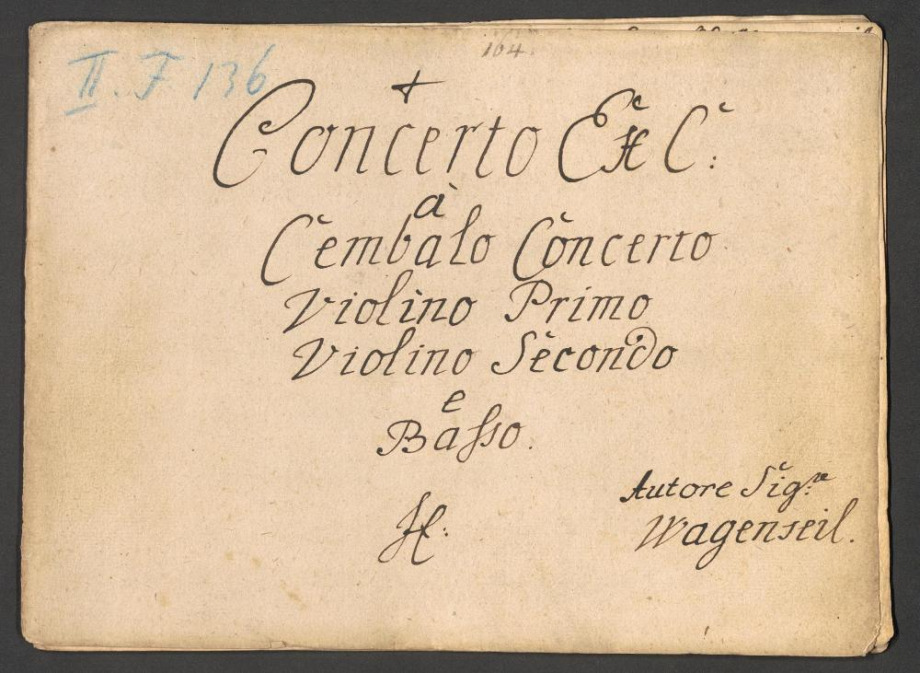 II. F 136
104.
+
Concerto Ex C:
à
Cembalo Concerto
Violino Primo
Violino Secondo
e
Basso.
Autore Sigre
Wagenseil.